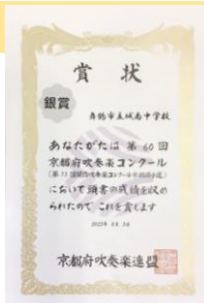 賞状
銀賞
舞鶴市立城南中学校
あなたがたは第60回
京都府吹奏楽コンクール
において頭書の成績を収め
られたので これを賞します
京都府吹奏楽連盟